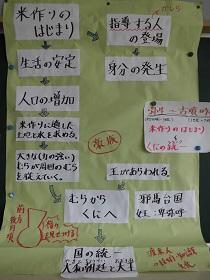 米作りの
はじまり
生活の安定
人口の増加
米作りに適した
土地と水を求める。
大きな(力の強い)
むらが周囲のむら
を従えていく。
むらから
くにへ
国の統一
大和朝廷と大王
かしら
指導する人
の登場
身分の発生
王があらわれる
邪馬台国
女王:卑弥呼
発展
弥生〜古墳
米作りのはじまり
くにの統一
前方後円墳
権力
見せつける
渡来人